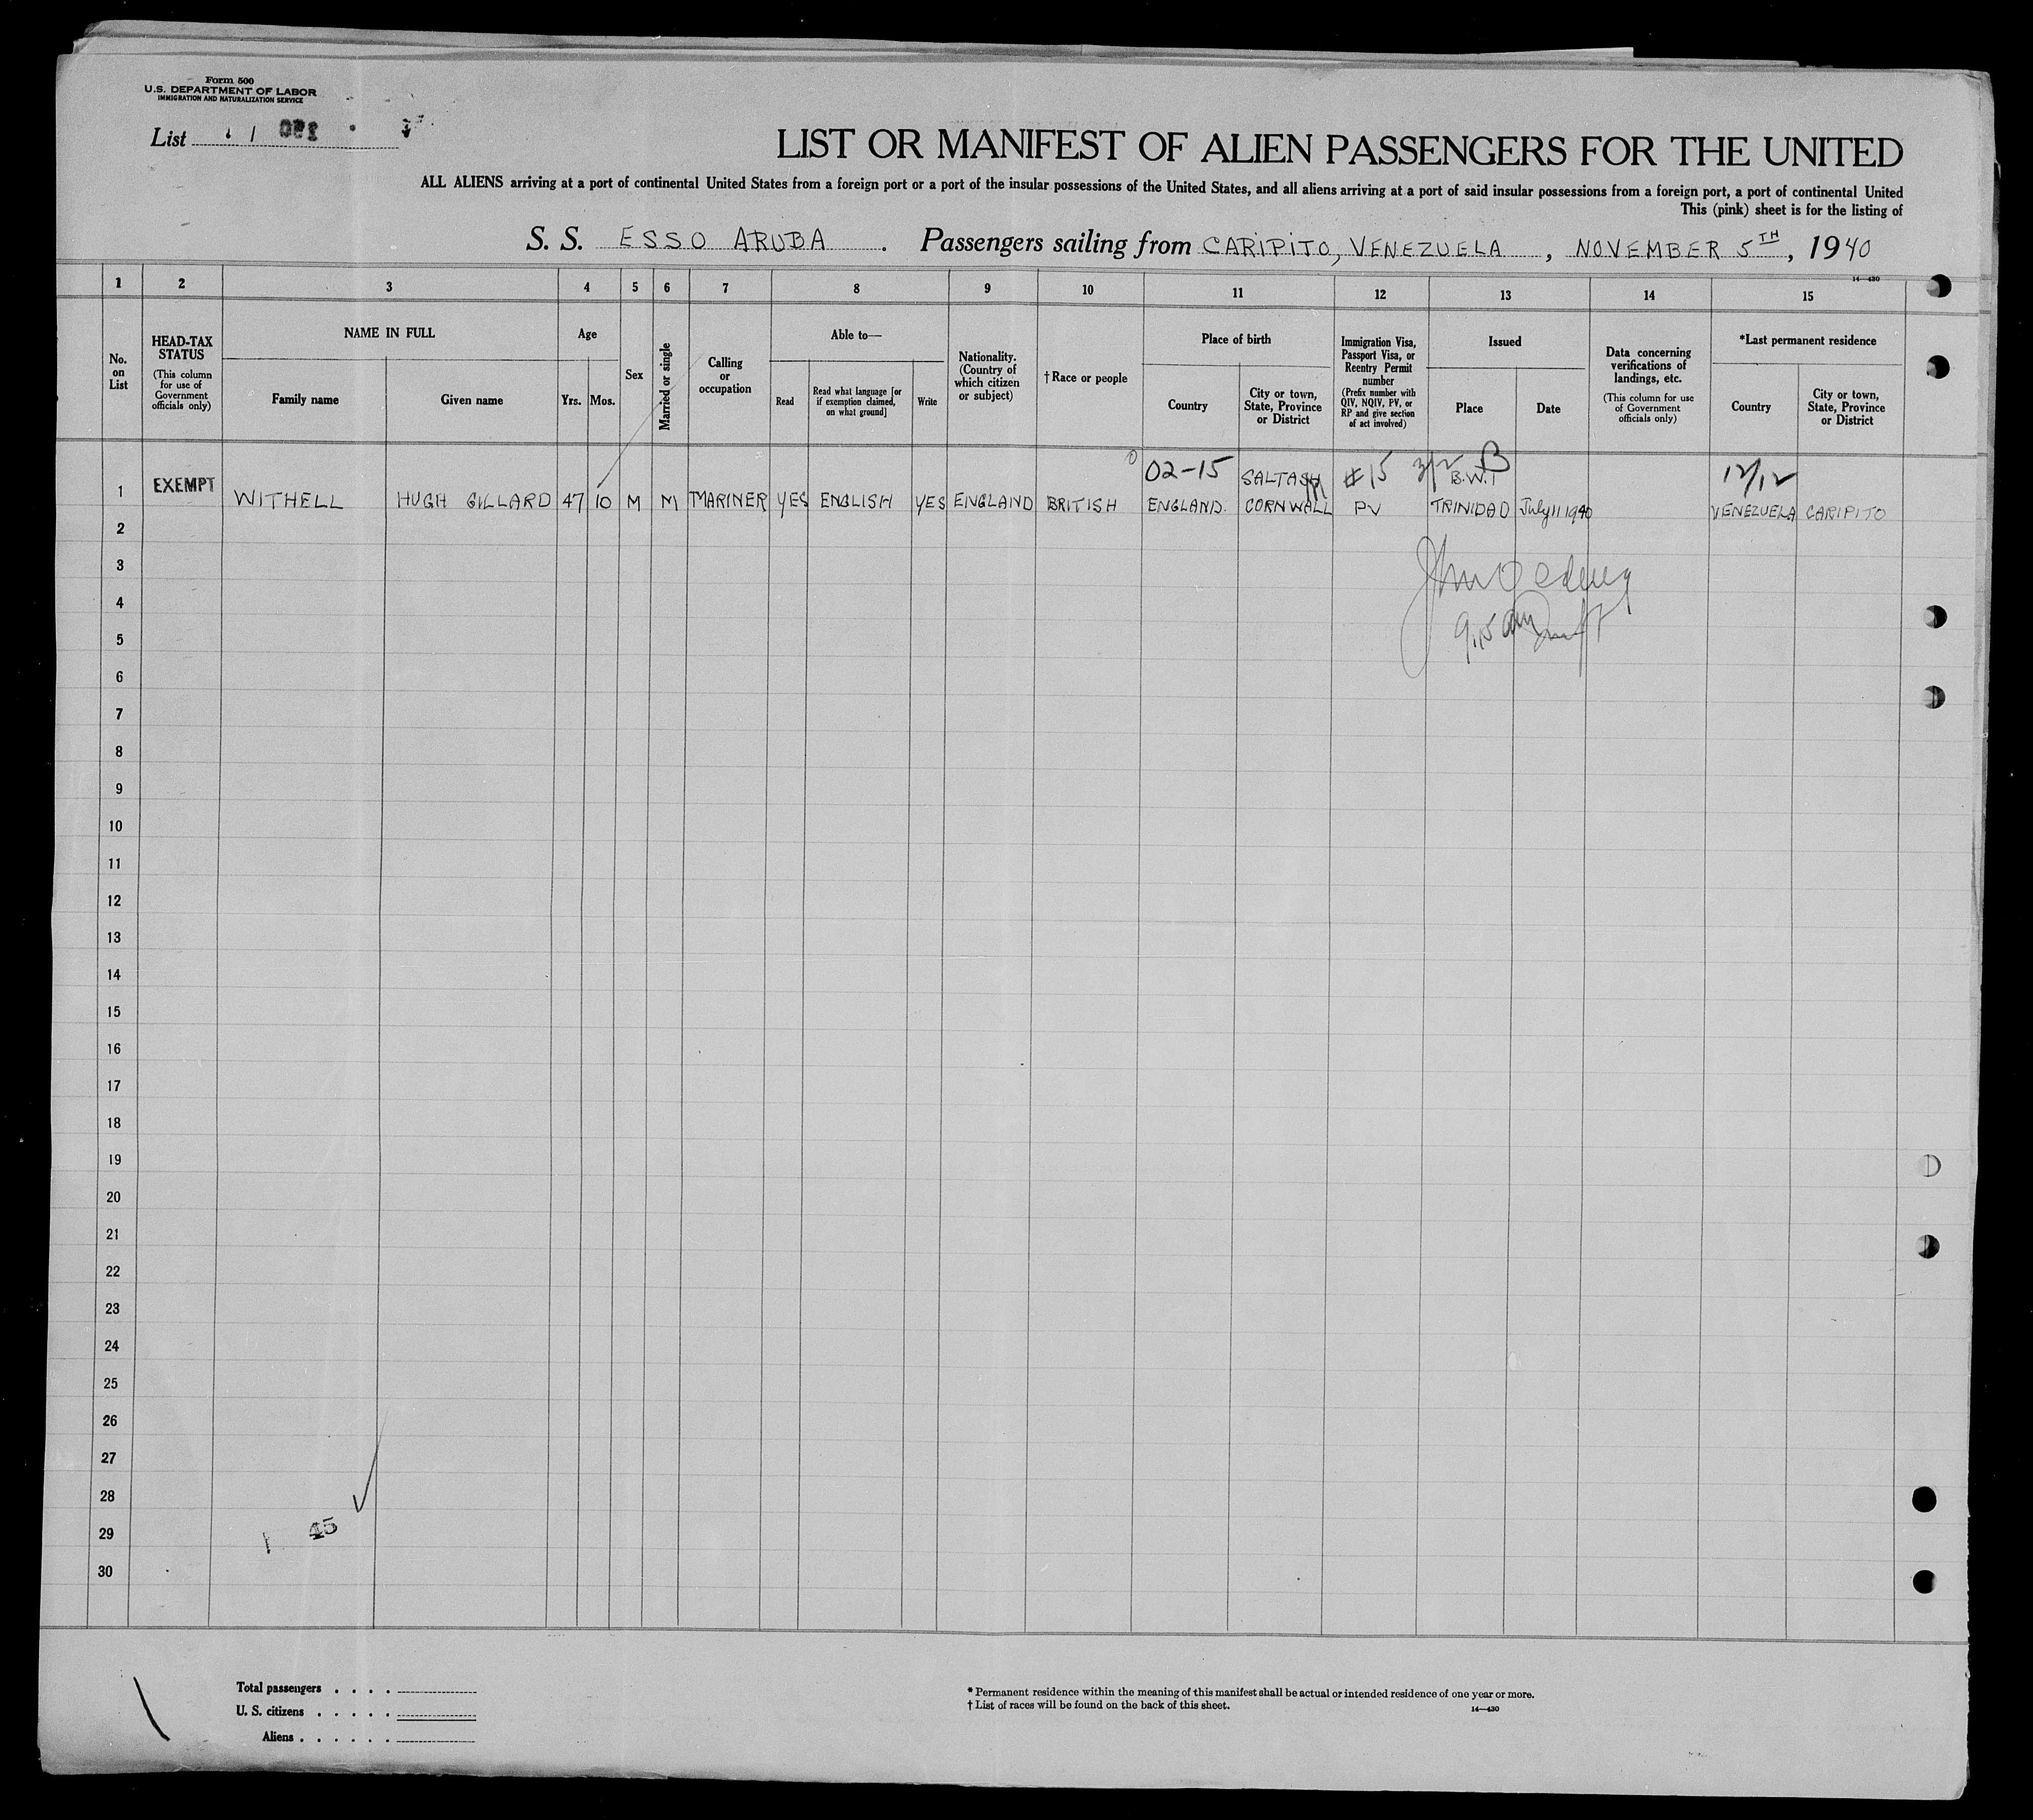 Form 500
U.S. DEPARTMENT OF LABOR
IMMIGRATION AND NATURALIZATION SERVICE
List
LIST OR MANIFEST OF ALIEN PASSENGERS FOR THE UNITED
ALL ALIENS arriving at a port of continental United States from a foreign port or a port of the insular possessions of the United States, and all aliens arriving at a port of said insular possessions from a foreign port, a port of continental United
This (pink) sheet is for the listing of
S. S. ESSO ARUBA. Passengers sailing from CARIPITO, VENEZUELA, NOVEMBER 5TH, 1940
14—430
1 2 3 4 5 6 7 8 9 10 11 12 13 14 15
No. on List
HEAD-TAX STATUS
(This column for use of Government officials only)
NAME IN FULL
Family name
Given name
Age
Yrs.
Mos.
Sex
Married or single
Calling or occupation
Able to—
Read
Read what language [or if exemption claimed, on what ground]
Write
Nationality. (Country of which citizen or subject)
†Race or people
Place of birth
Country
City or town, State, Province or District
Immigration Visa, Passport Visa, or Reentry Permit number
(Prefix number with QIV, NQIV, PV, or RP and give section of act involved)
Issued
Place
Date
Data concerning verifications of landings, etc.
(This column for use of Government officials only)
*Last permanent residence
Country
City or town, State, Province or District
02-15 SALTASH #15 3/2 B B.W.I 12/12
1 EXEMPT WITHELL HUGH GILLARD 47 10 M M MARINER YES ENGLISH YES ENGLAND BRITISH ENGLAND. CORNWALL PV TRINIDAD July 11 1940 VENEZUELA CARIPITO
2
3
4
5
6
7
8
9
10
11
12
13
14
15
16
17
18
19
20
21
22
23
24
25
26
27
28
29
1 45
30
Total passengers . . . .
U. S. citizens . . . . .
Aliens . . . . . .
* Permanent residence within the meaning of this manifest shall be actual or intended residence of one year or more.
† List of races will be found on the back of this sheet.
14—430